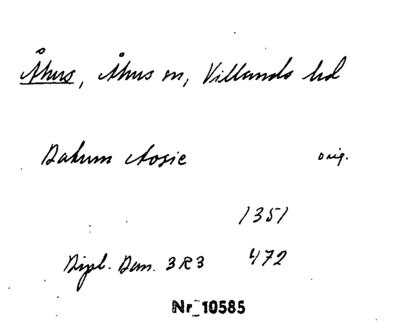 Åhus, Åhus sn, Villands hd
Datum Aosie orig.
1351
Dipl. Dan. 3R3 472
Nr 10585